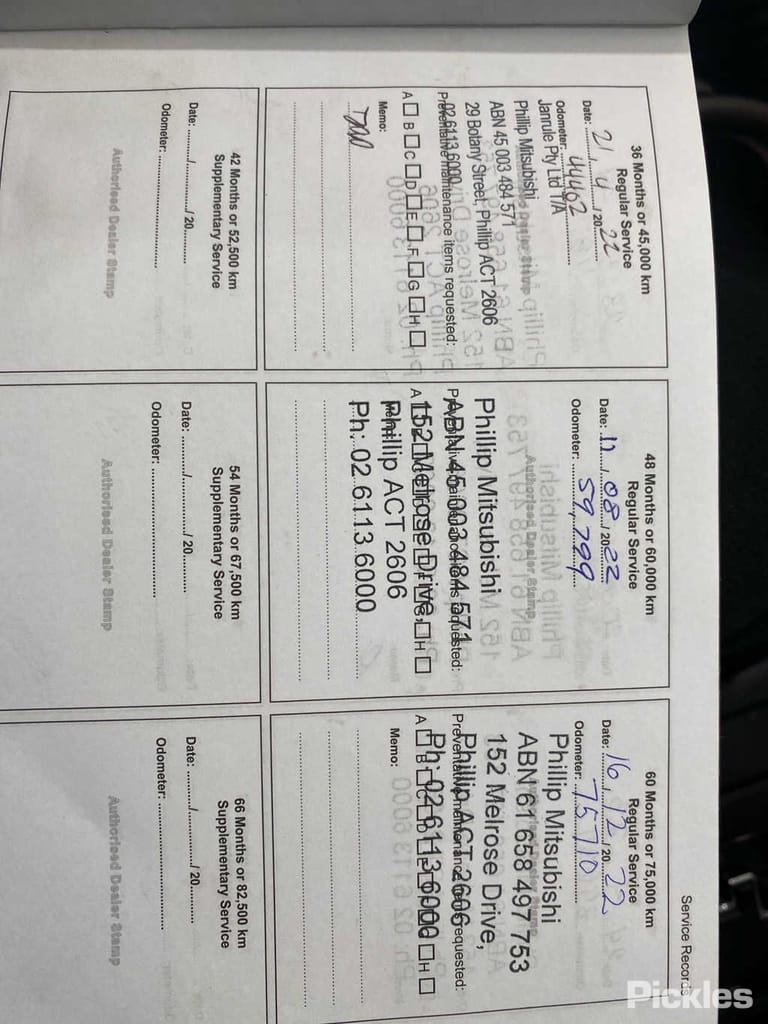 Service Records
36 Months or 45,000 km
Regular Service
Date: 21/4/2022
Odometer: 44462
Janrule Pty Ltd T/A
Phillip Mitsubishi
ABN 45 003 484 571
29 Botany Street, Phillip ACT 2606
02 6113 6000
Preventative maintenance items requested:
A B C D E F G H
Memo:
48 Months or 60,000 km
Regular Service
Date: 11/08/2022
Odometer: 59,799
Authorised Dealer Stamp
Phillip Mitsubishi
ABN 45 003 484 571
152 Melrose Drive,
Phillip ACT 2606
Ph: 02 6113 6000
Preventative maintenance items requested:
60 Months or 75,000 km
Regular Service
Date: 16/12/2022
Odometer: 75710
Phillip Mitsubishi
ABN 61 658 497 753
152 Melrose Drive,
Phillip ACT 2606
Ph: 02 6113 6000
Preventative maintenance items requested:
A B C D E F G H
Memo:
42 Months or 52,500 km
Supplementary Service
Date: ........./........./ 20.........
Odometer:
Authorised Dealer Stamp
54 Months or 67,500 km
Supplementary Service
Date: ........./........./ 20.........
Odometer:
Authorised Dealer Stamp
66 Months or 82,500 km
Supplementary Service
Date: ........./........./ 20.........
Odometer:
Authorised Dealer Stamp
Pickles